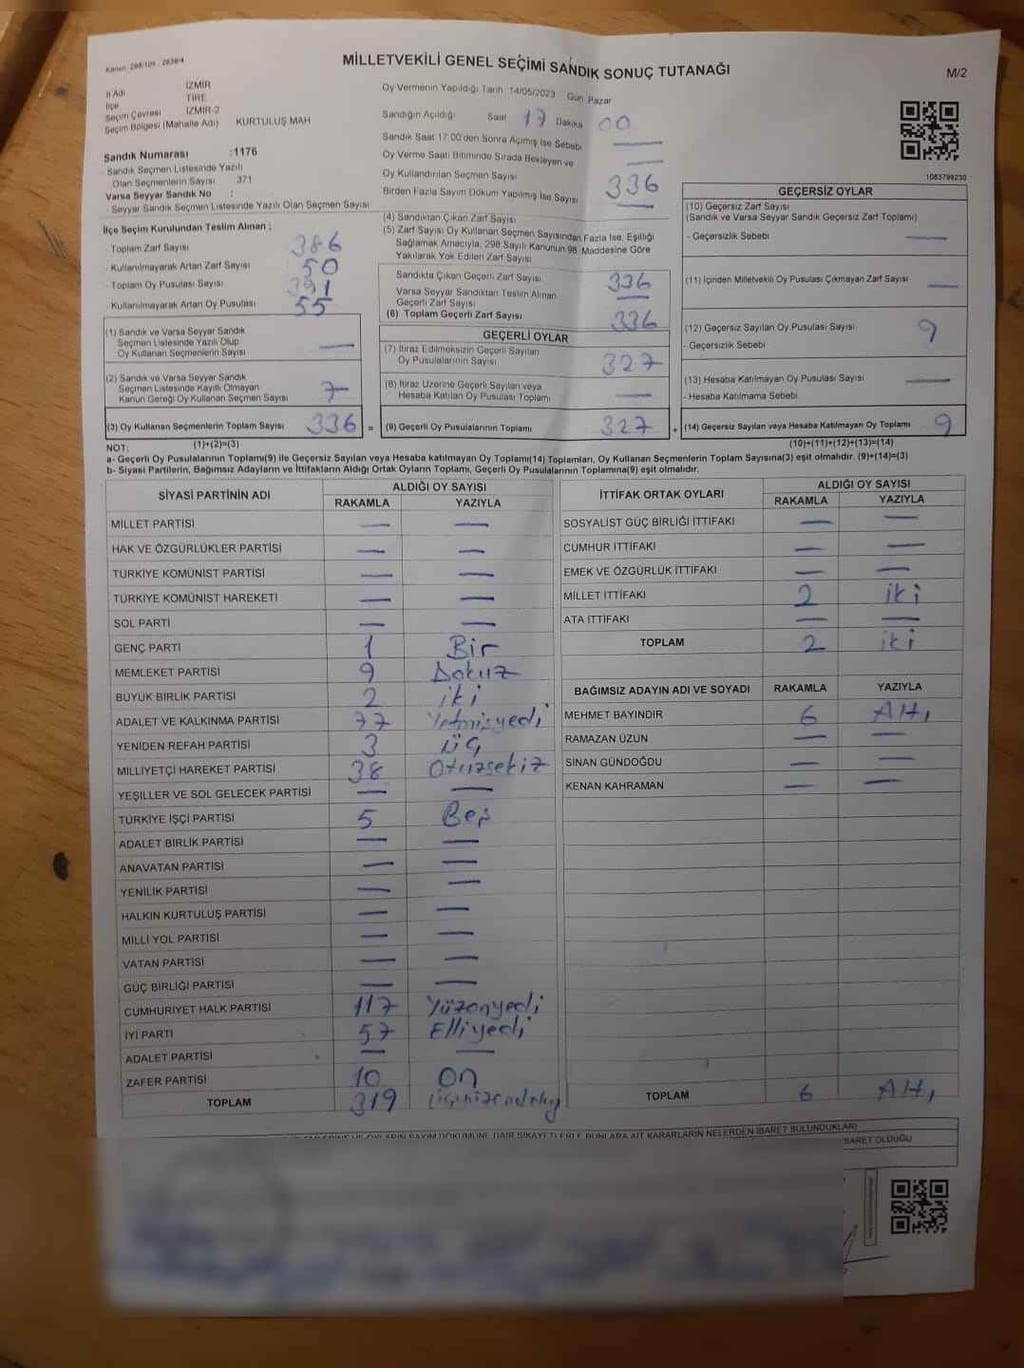 Kanun: 298/105 - 2839/4
MİLLETVEKİLİ GENEL SEÇİMİ SANDIK SONUÇ TUTANAĞI
M/2
İl Adı İZMİR
İlçe TİRE
Seçim Çevresi İZMİR-2
Seçim Bölgesi (Mahalle Adı) KURTULUŞ MAH
Sandık Numarası :1176
Sandık Seçmen Listesinde Yazılı
Olan Seçmenlerin Sayısı 371
Varsa Seyyar Sandık No :
Seyyar Sandık Seçmen Listesinde Yazılı Olan Seçmen Sayısı
İlçe Seçim Kurulundan Teslim Alınan ;
- Toplam Zarf Sayısı 386
- Kullanılmayarak Artan Zarf Sayısı 50
- Toplam Oy Pusulası Sayısı 391
- Kullanılmayarak Artan Oy Pusulası 55
(1) Sandık ve Varsa Seyyar Sandık
Seçmen Listesinde Yazılı Olup
Oy Kullanan Seçmenlerin Sayısı —
(2) Sandık ve Varsa Seyyar Sandık
Seçmen Listesinde Kayıtlı Olmayan
Kanun Gereği Oy Kullanan Seçmen Sayısı 7
(3) Oy Kullanan Seçmenlerin Toplam Sayısı 336 =
(1)+(2)=(3)
Oy Vermenin Yapıldığı Tarih :14/05/2023 Gün Pazar
Sandığın Açıldığı Saat 17 Dakika 00
Sandık Saat 17:00'den Sonra Açılmış İse Sebebi —
Oy Verme Saati Bitiminde Sırada Bekleyen ve —
Oy Kullandırılan Seçmen Sayısı 336
Birden Fazla Sayım Döküm Yapılmış İse Sayısı —
(4) Sandıktan Çıkan Zarf Sayısı
(5) Zarf Sayısı Oy Kullanan Seçmen Sayısından Fazla İse, Eşitliği
Sağlamak Amacıyla, 298 Sayılı Kanunun 98 Maddesine Göre
Yakılarak Yok Edilen Zarf Sayısı
Sandıkta Çıkan Geçerli Zarf Sayısı 336
Varsa Seyyar Sandıktan Teslim Alınan
Geçerli Zarf Sayısı —
(6) Toplam Geçerli Zarf Sayısı 336
GEÇERLİ OYLAR
(7) İtiraz Edilmeksizin Geçerli Sayılan
Oy Pusulalarının Sayısı 327
(8) İtiraz Üzerine Geçerli Sayılan veya
Hesaba Katılan Oy Pusulası Toplamı —
(9) Geçerli Oy Pusulalarının Toplamı 327 +
1083799230
GEÇERSİZ OYLAR
(10) Geçersiz Zarf Sayısı
(Sandık ve Varsa Seyyar Sandık Geçersiz Zarf Toplamı)
- Geçersizlik Sebebi —
(11) İçinden Milletvekili Oy Pusulası Çıkmayan Zarf Sayısı —
(12) Geçersiz Sayılan Oy Pusulası Sayısı 9
- Geçersizlik Sebebi
(13) Hesaba Katılmayan Oy Pusulası Sayısı —
- Hesaba Katılmama Sebebi
(14) Geçersiz Sayılan veya Hesaba Katılmayan Oy Toplamı 9
(10)+(11)+(12)+(13)=(14)
NOT:
a- Geçerli Oy Pusulalarının Toplamı(9) ile Geçersiz Sayılan veya Hesaba katılmayan Oy Toplamı(14) Toplamları, Oy Kullanan Seçmenlerin Toplam Sayısına(3) eşit olmalıdır. (9)+(14)=(3)
b- Siyasi Partilerin, Bağımsız Adayların ve İttifakların Aldığı Ortak Oyların Toplamı, Geçerli Oy Pusulalarının Toplamına(9) eşit olmalıdır.
SİYASİ PARTİNİN ADI ALDIĞI OY SAYISI
RAKAMLA YAZIYLA
MİLLET PARTİSİ — —
HAK VE ÖZGÜRLÜKLER PARTİSİ — —
TÜRKİYE KOMÜNİST PARTİSİ — —
TÜRKİYE KOMÜNİST HAREKETİ — —
SOL PARTİ — —
GENÇ PARTİ 1 Bir
MEMLEKET PARTİSİ 9 Dokuz
BÜYÜK BİRLİK PARTİSİ 2 iki
ADALET VE KALKINMA PARTİSİ 77 Yetmişyedi
YENİDEN REFAH PARTİSİ 3 üç
MİLLİYETÇİ HAREKET PARTİSİ 38 Otuzsekiz
YEŞİLLER VE SOL GELECEK PARTİSİ — —
TÜRKİYE İŞÇİ PARTİSİ 5 Beş
ADALET BİRLİK PARTİSİ — —
ANAVATAN PARTİSİ — —
YENİLİK PARTİSİ — —
HALKIN KURTULUŞ PARTİSİ — —
MİLLİ YOL PARTİSİ — —
VATAN PARTİSİ — —
GÜÇ BİRLİĞİ PARTİSİ — —
CUMHURİYET HALK PARTİSİ 117 Yüzonyedi
İYİ PARTİ 57 Elliyedi
ADALET PARTİSİ — —
ZAFER PARTİSİ 10 On
TOPLAM 319
İTTİFAK ORTAK OYLARI ALDIĞI OY SAYISI
RAKAMLA YAZIYLA
SOSYALİST GÜÇ BİRLİĞİ İTTİFAKI — —
CUMHUR İTTİFAKI — —
EMEK VE ÖZGÜRLÜK İTTİFAKI — —
MİLLET İTTİFAKI 2 iki
ATA İTTİFAKI — —
TOPLAM 2 iki
BAĞIMSIZ ADAYIN ADI VE SOYADI RAKAMLA YAZIYLA
MEHMET BAYINDIR 6 Altı
RAMAZAN UZUN — —
SİNAN GÜNDOĞDU — —
KENAN KAHRAMAN — —
TOPLAM 6 Altı
SAYIM DÖKÜMÜNE DAİR ŞİKAYETLERLE BUNLARA AİT KARARLARIN NELERDEN İBARET BULUNDUKLARI
İBARET OLDUĞU